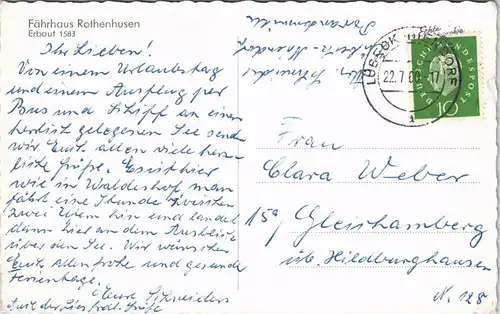 Fährhaus Rothenhusen
Erbaut 1583
Ihr Lieben!
Von einem Urlaubstag
und einem Ausflug per
Bus und Schiff an einen
herrlich gelegenen See senden
wir Euch allen viele herz-
liche Grüße. Es ist hier
wie in Waldeshof, man
fährt eine Stunde zwischen
zwei Ufern und landet
dann hier an dem Ausblick
über den See. Wir wünschen
Euch allen frohe und gesunde
Ferientage.
Eure Schneiders
LÜBECK
22.7.60.-17
DEUTSCHE BUNDESPOST
10
Frau
Clara Weber
15a Gleichamberg
üb. Hildburghausen
N. 128